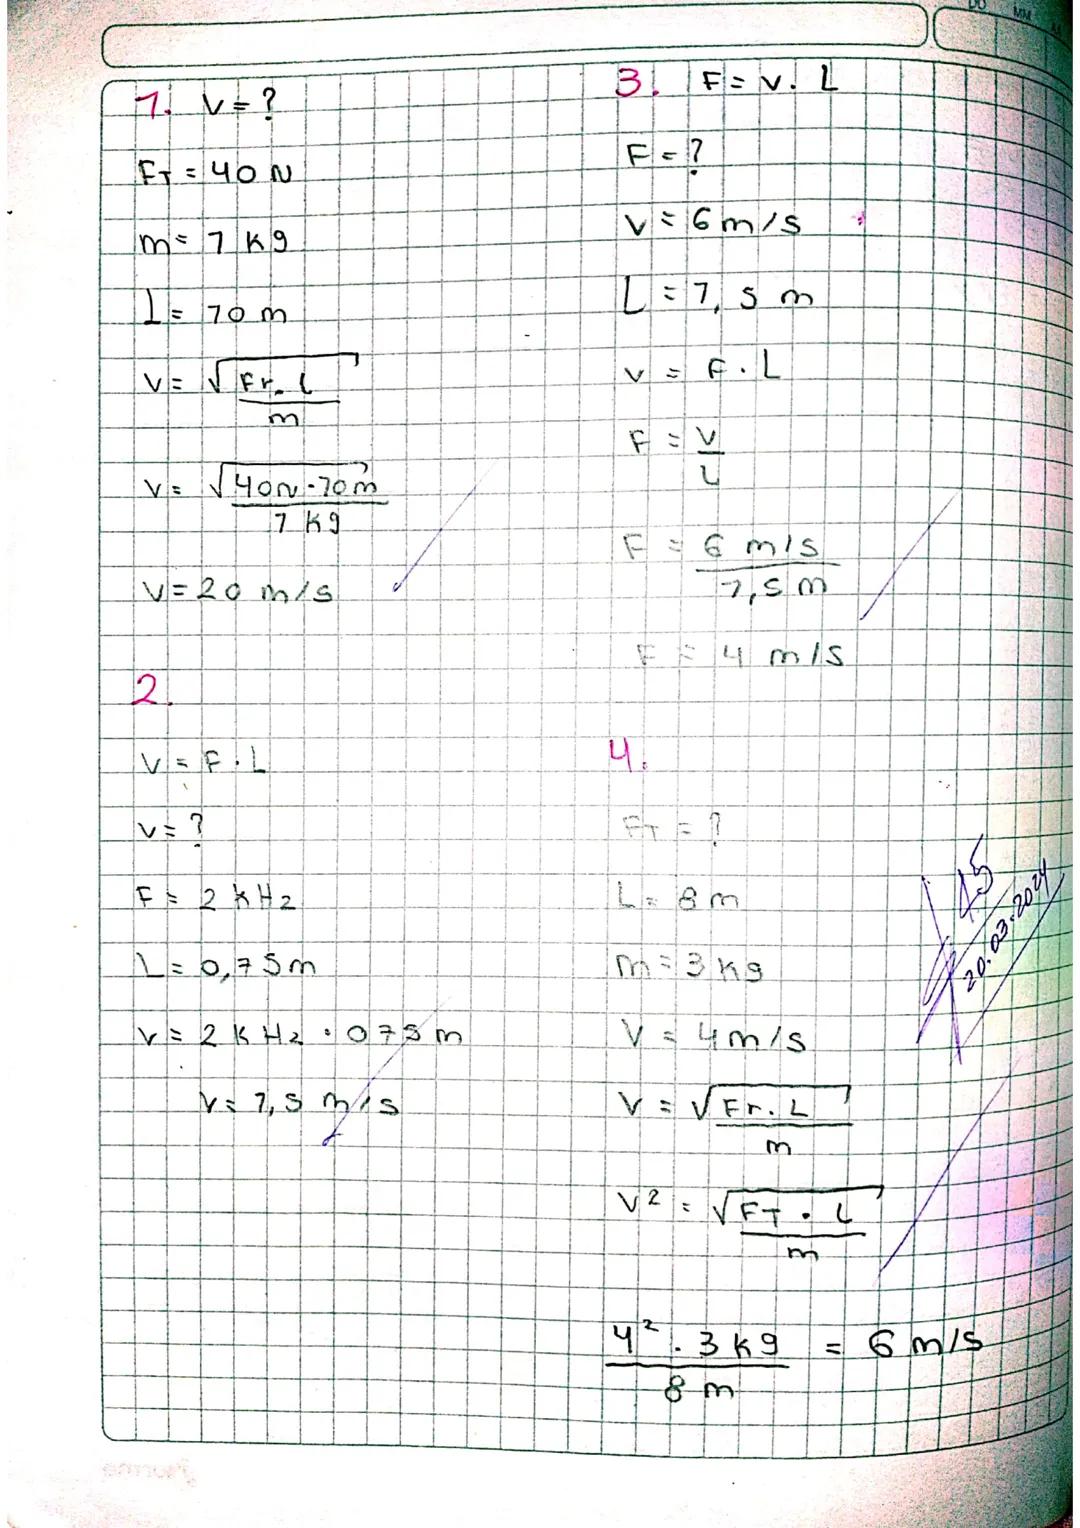 1. V = ?
FT = 40 N
m = 1 kg
L = 10 m
V = √Fr. L
m
V = √40N · 10m
1 kg
V = 20 m/s
2.
V = F · L
V = ?
F = 2 kHz
L = 0,75m
V = 2 kHz · 075 m
V = 1,5 m/s
3. F = v. L
F = ?
V = 6 m/s
L = 1,5 m
v = F . L
F = V
L
F = 6 m/s
1,5 m
F = 4 m/s
4.
FT = ?
L = 8 m
m = 3 kg
V = 4 m/s
V = √Fr. L
m
V² = √FT . L
m
4² . 3 kg = 6 m/s
8 m
4.5
20.03.2024
norma